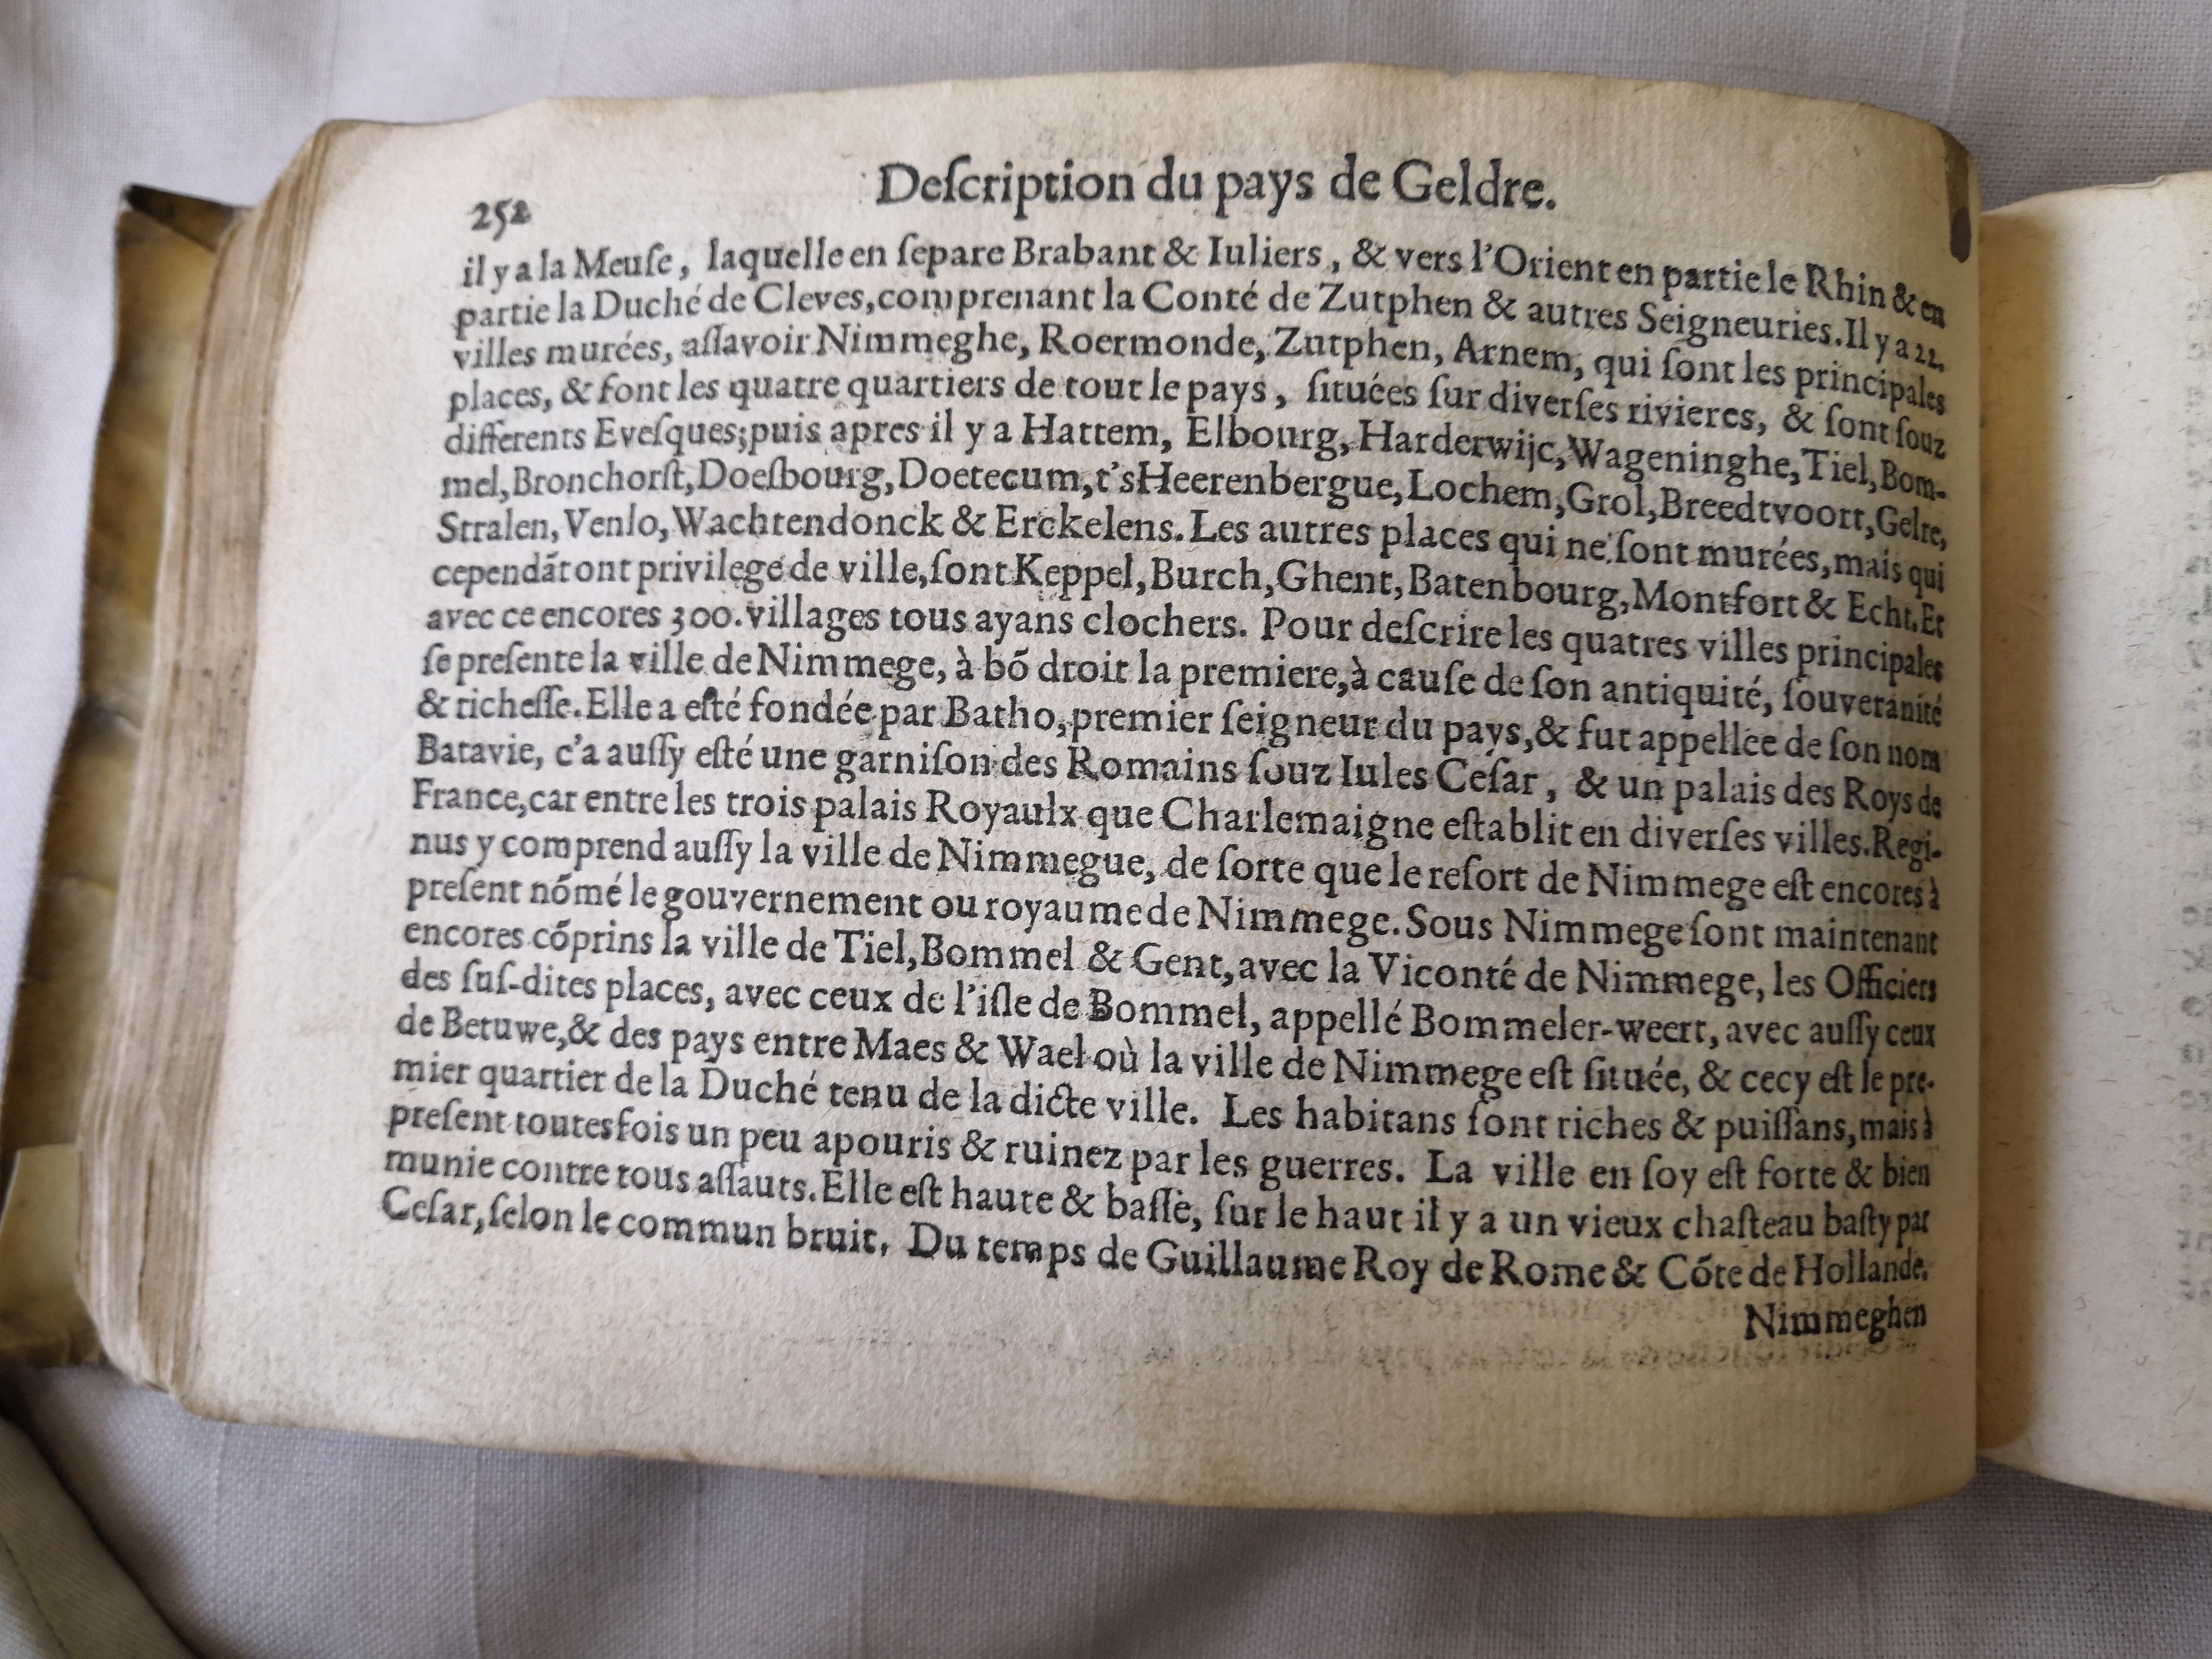 252
Deſcription du pays de Geldre.
il y a la Meuſe, laquelle en ſepare Brabant & Iuliers, & vers l'Orient en partie le Rhin & en
partie la Duché de Cleves, comprenant la Conté de Zutphen & autres Seigneuries. Il y a 22.
villes murées, aſſavoir Nimmeghe, Roermonde, Zutphen, Arnem, qui ſont les principales
places, & font les quatre quartiers de tout le pays, ſituées ſur diverſes rivieres, & ſont ſouz
differents Eveſques; puis apres il y a Hattem, Elbourg, Harderwijc, Wageninghe, Tiel, Bom-
mel, Bronchorſt, Doeſbourg, Doetecum, t'sHeerenbergue, Lochem, Grol, Breedtvoort, Gelre,
Stralen, Venlo, Wachtendonck & Erckelens. Les autres places qui ne ſont murées, mais qui
cependāt ont privilege de ville, ſont Keppel, Burch, Ghent, Batenbourg, Montfort & Echt. Et
avec ce encores 300. villages tous ayans clochers. Pour deſcrire les quatres villes principales
ſe preſente la ville de Nimmege, à bō droit la premiere, à cauſe de ſon antiquité, ſouveranité
& richeſſe. Elle a eſté fondée par Batho, premier ſeigneur du pays, & fut appellee de ſon nom
Batavie, c'a auſſy eſté une garniſon des Romains ſouz Iules Ceſar, & un palais des Roys de
France, car entre les trois palais Royaulx que Charlemaigne eſtablit en diverſes villes. Regi-
nus y comprend auſſy la ville de Nimmegue, de ſorte que le reſort de Nimmege eſt encores à
preſent nōmé le gouvernement ou royaume de Nimmege. Sous Nimmege ſont maintenant
encores cōprins la ville de Tiel, Bommel & Gent, avec la Viconté de Nimmege, les Officiers
des ſuſ-dites places, avec ceux de l'iſle de Bommel, appellé Bommeler-weert, avec auſſy ceux
de Betuwe, & des pays entre Maes & Wael où la ville de Nimmege eſt ſituée, & cecy eſt le pre-
mier quartier de la Duché tenu de la dicte ville. Les habitans ſont riches & puiſſans, mais à
preſent toutesfois un peu apouris & ruinez par les guerres. La ville en ſoy eſt forte & bien
munie contre tous aſſauts. Elle eſt haute & baſſe, ſur le haut il y a un vieux chaſteau baſty par
Ceſar, ſelon le commun bruit. Du temps de Guillaume Roy de Rome & Cōte de Hollande,
Nimmeghen